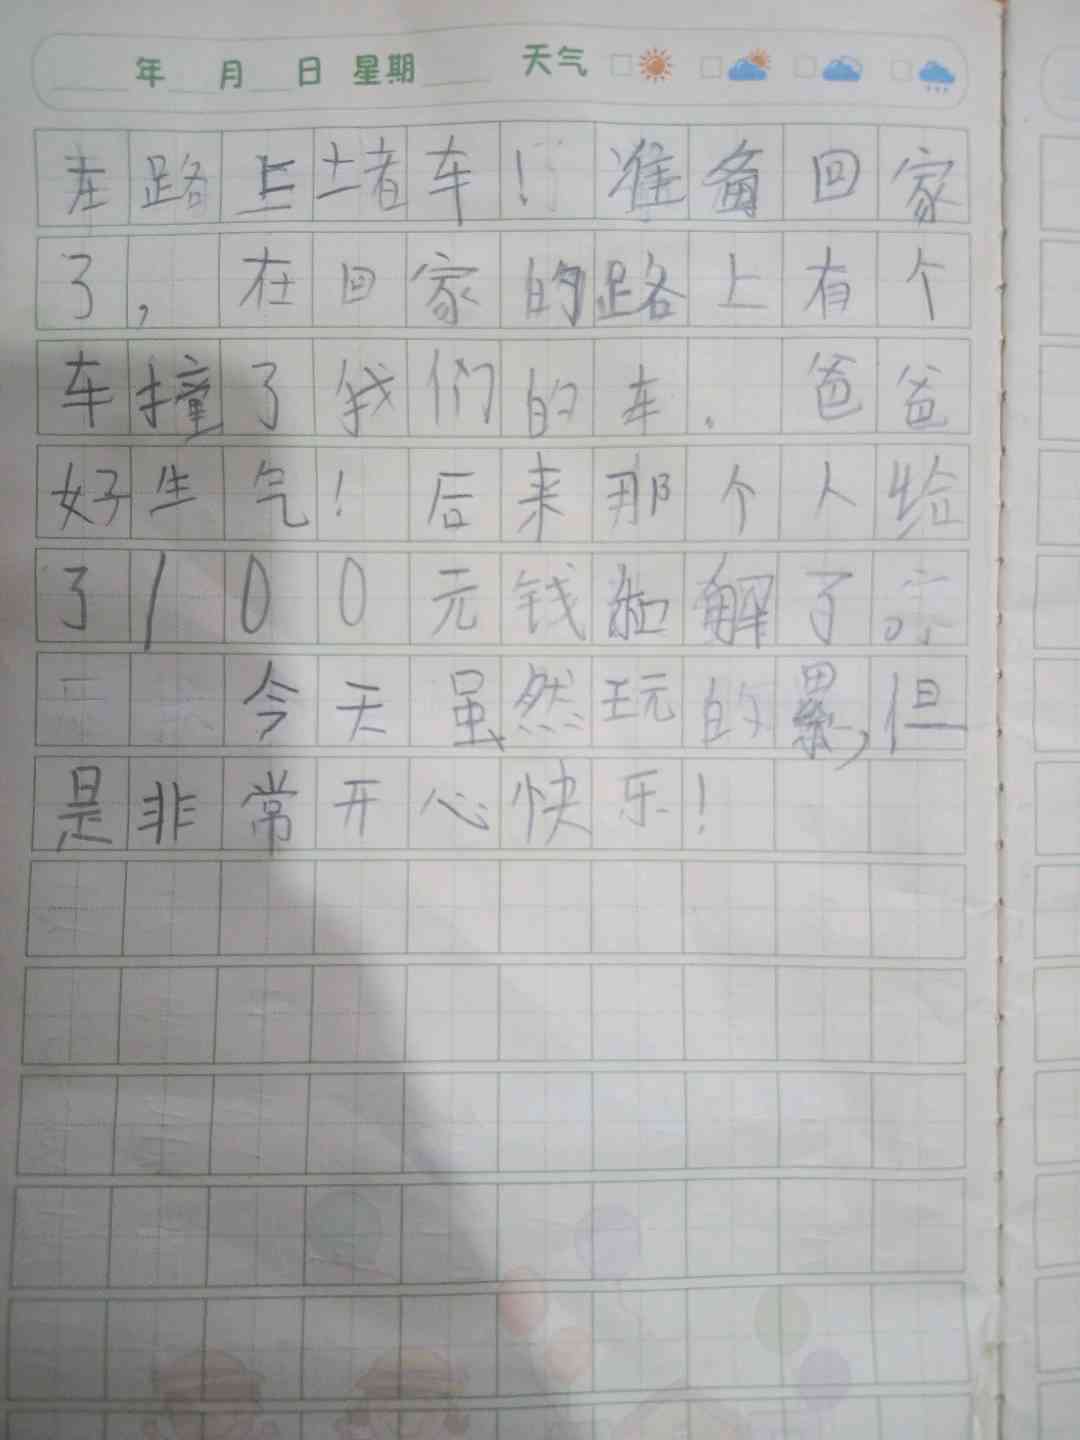 年 月 日 星期 天气
在路上堵车！准备回家
了，在回家的路上有个
车撞了我们的车．爸爸
好生气！后来那个人给
了100元钱和解了。
今天虽然玩的累，但
是非常开心快乐！